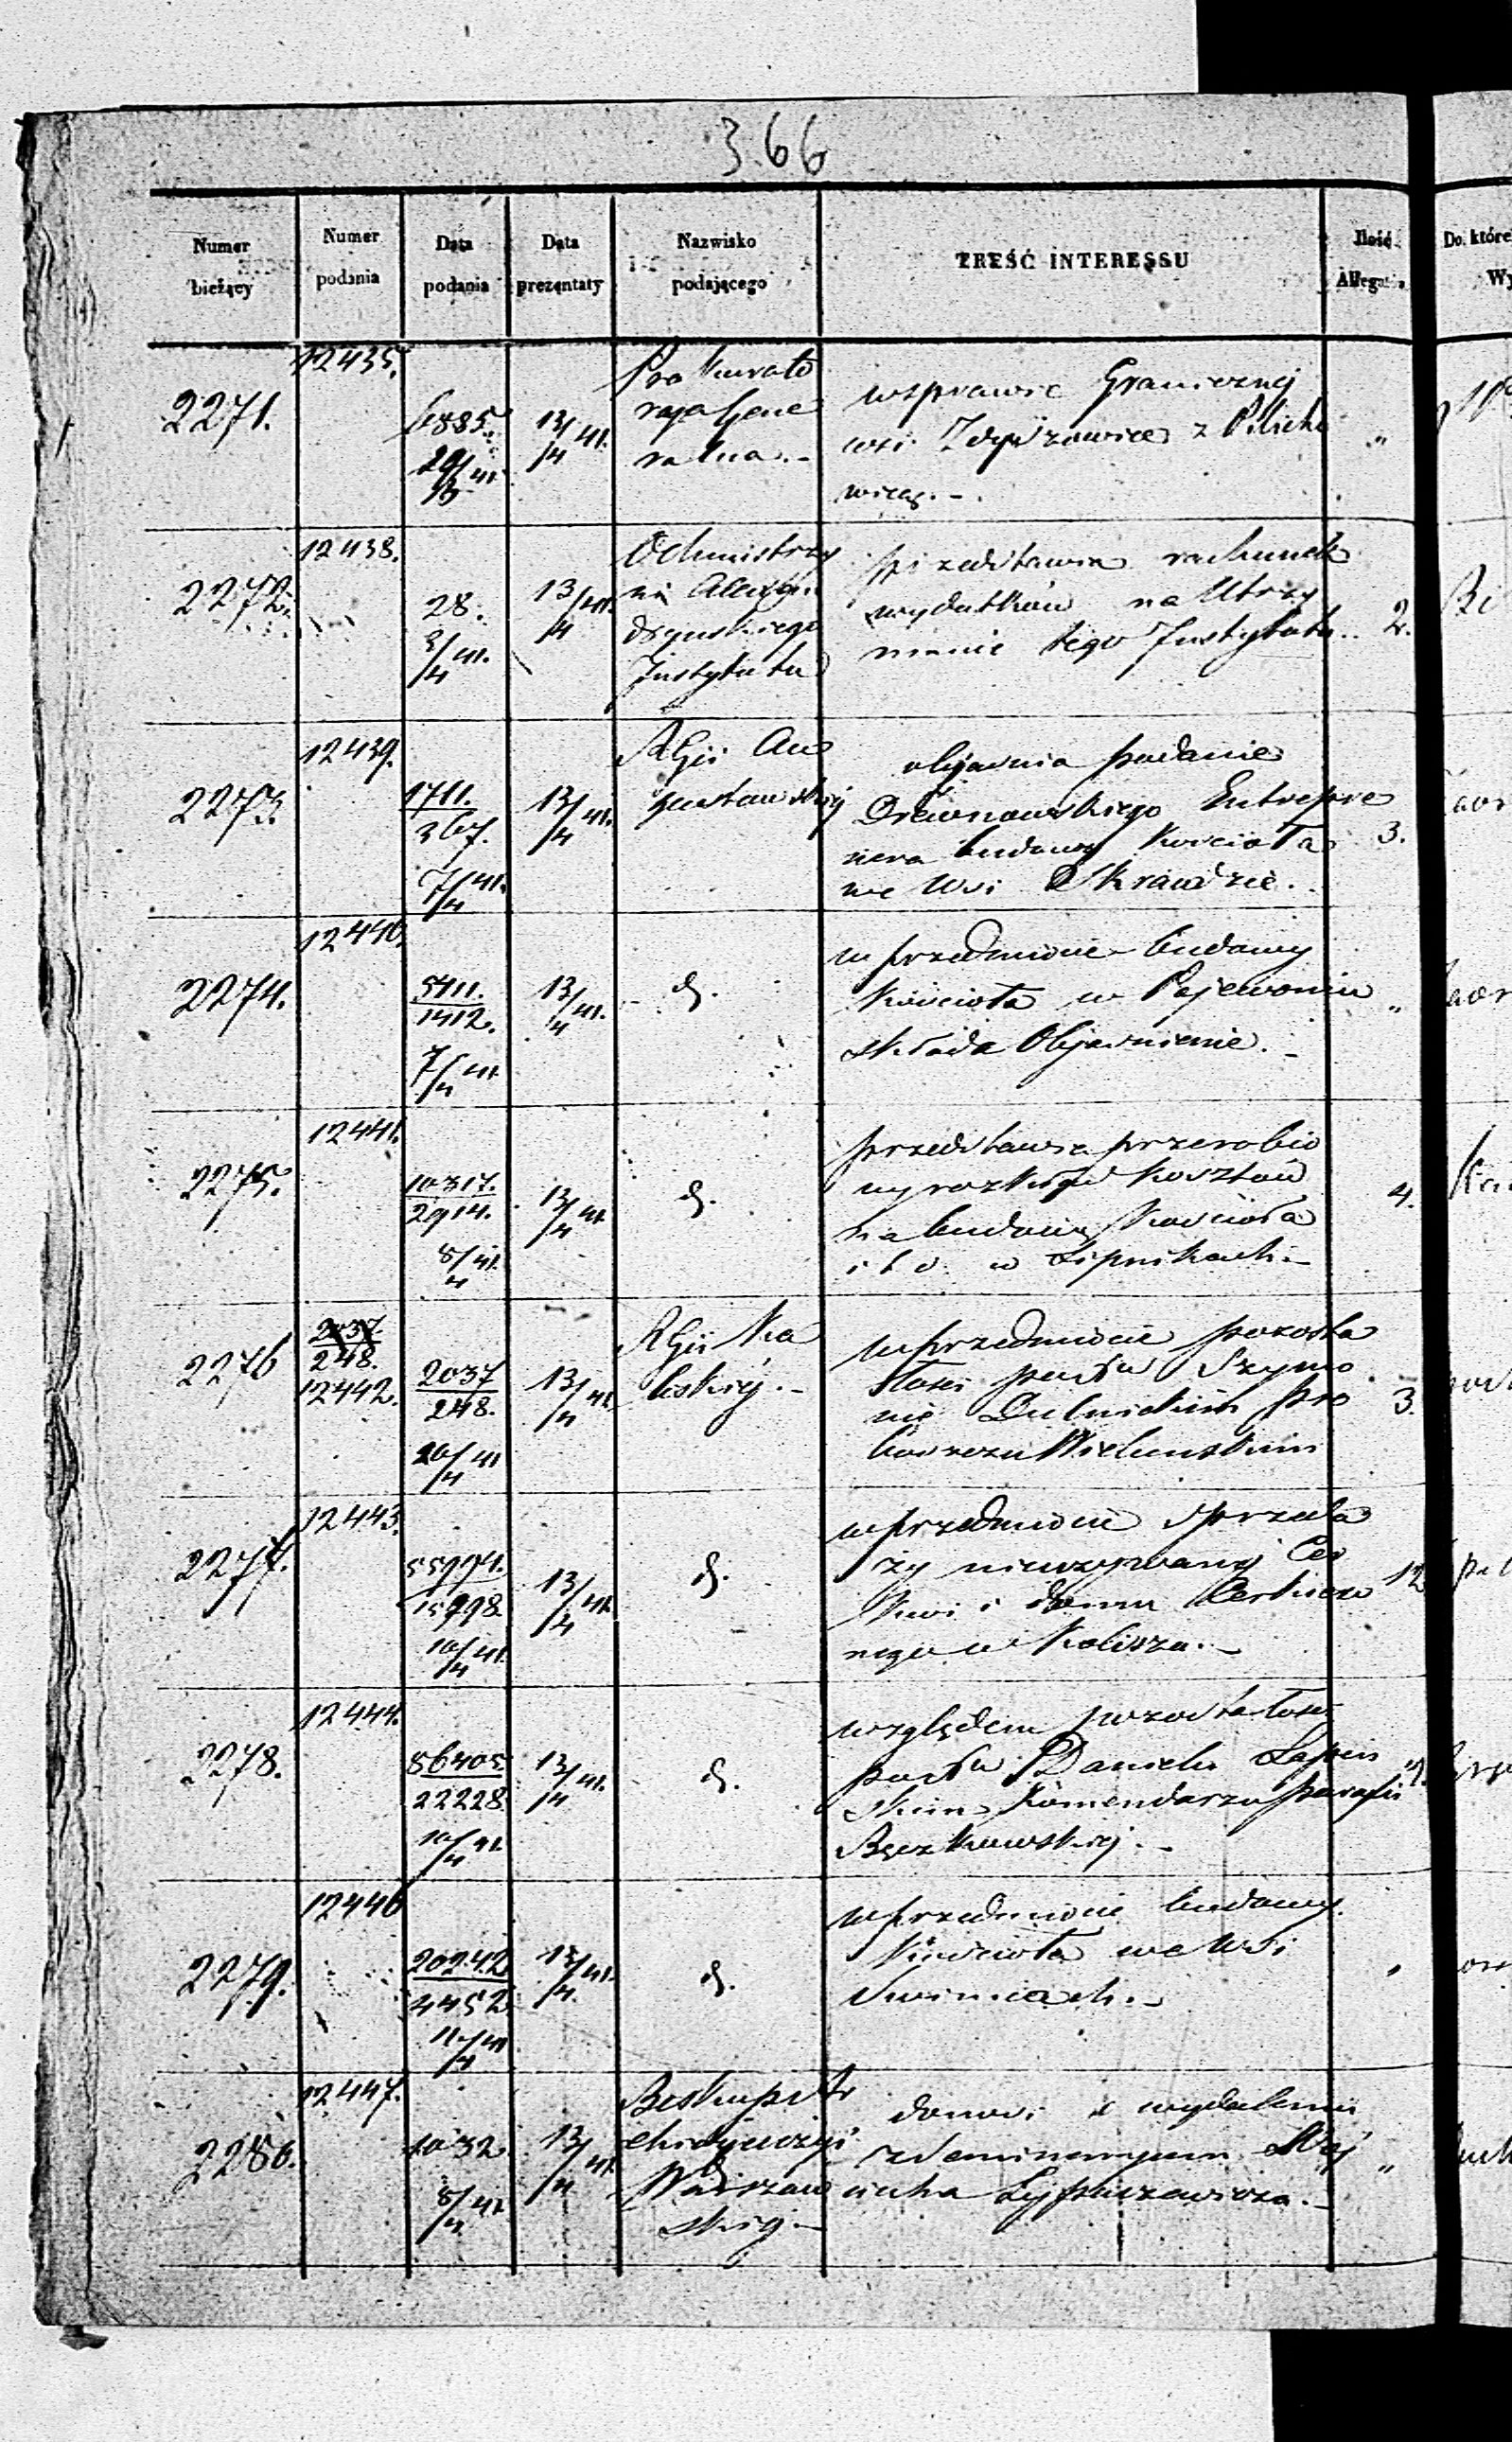 366
Numer bieżący
Numer podania
Data podania
Data prezentaty
Nazwisko podającego
TREŚĆ INTERESSU
Ilość
Do. które
Wy
2271.
12435.
6885.
29/3 41.
13/4 41.
Prokurato
rya Gene
ralna.-
w sprawie Granicznej
wsi
z Pilicho
wicą.-
"
2272.
12438.
28.
3/4 41.
13/4 41.
Ochmistrzy
ni Alexan
dryjskiego
Instytutu
przedstawia rachunek
wydatków na Utrzy
manie tego Instytutu..
2.
2273.
12439.
1711.
367.
7/4 41.
13/4 41.
RGii Au
gustowskiej
objasnia podanie
Drewnowskiego Entrepre
niera budowy Kościoła
we Wsi Skrawdzie.
3.
2274.
12440.
5711.
1412.
7/4 41.
13/4 41.
d.
w przedmiocie budowy
Kościoła w Pajewoniu
składa Objasnienie.-
"
2275.
12441.
10317.
2914.
8/4 41.
13/4 41.
d.
przedstawia przerobio
ny rozkład kosztów
na budowę Kościoła
i t d. w Lipnikach.-
4.
2276
2037.
248.
12442.
2037
248.
10/4 41
13/4 41.
RGii Ka
liskiej.-
w przedmiocie pozosta
łości po X Szymo
nie
pro
boszczu Wieluńskim
3.
2277.
12443.
55994.
15998.
10/4 41.
13/4 41.
d.
w przedmiocie sprzeda
ży nieużywanej Cer
kwi i domu Cerkiew
nego w Kaliszu.-
12
2278.
12444.
56405.
22228.
10/4 41.
13/4 41.
d.
względem pozostałości
po X Danielu Łapiń
skim Komendarzu parafii
Bęczkowskiej.-
2279.
12446
20242
4452
11/4 41
13/4 41.
d.
w przedmiocie budowy
Kościoła we Wsi
Swinicach.-
"
2280.
12447.
1032
8/4 41.
13/4 41.
Biskup Ar
chidyecezyi
Warszaw
skiej-
donosi o wydaleniu
z Seminaryum Woj
ciecha
"